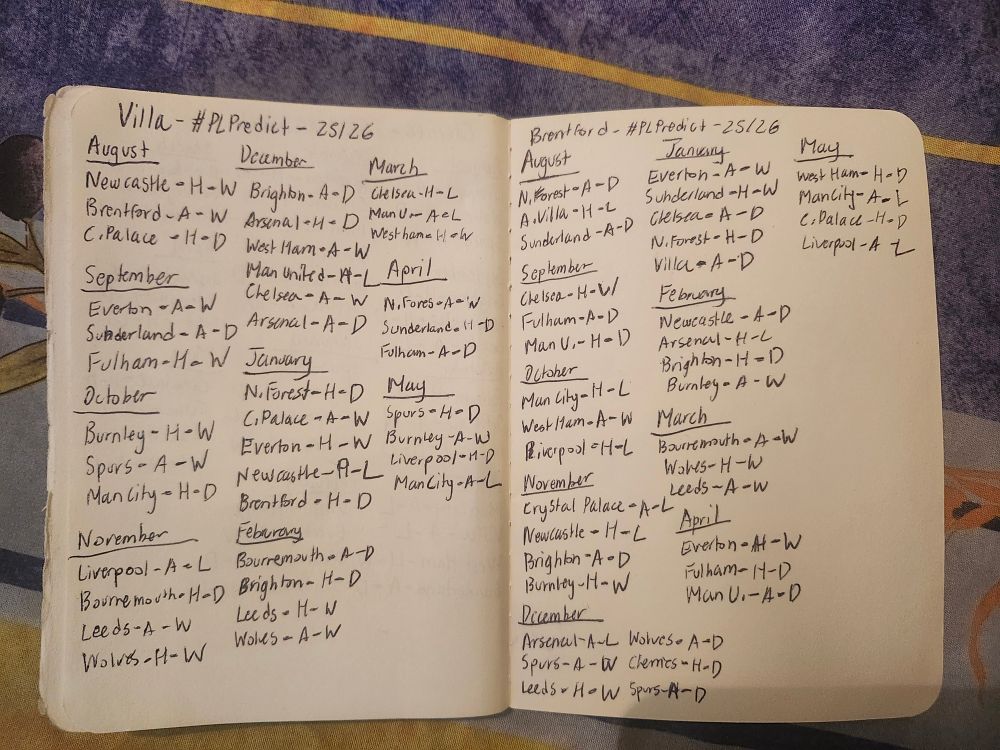 Villa - #PLPredict - 25/26
August
Newcastle - H - W
Brentford - A - W
C.Palace - H - D
September
Everton - A - W
Sunderland - A - D
Fulham - H - W
October
Burnley - H - W
Spurs - A - W
Man City - H - D
November
Liverpool - A - L
Bournemouth - H - D
Leeds - A - W
Wolves - H - W
December
Brighton - A - D
Arsenal - H - D
West Ham - A - W
Man United - H - L
Chelsea - A - W
Arsenal - A - D
January
N.Forest - H - D
C.Palace - A - W
Everton - H - W
Newcastle - A - L
Brentford - H - D
February
Bournemouth - A - D
Brighton - H - D
Leeds - H - W
Wolves - A - W
March
Chelsea - H - L
Man U. - A - L
Westham - H - W
April
N.Fores - A - W
Sunderland - H - D
Fulham - A - D
May
Spurs - H - D
Burnley - A - W
Liverpool - H - D
Man City - A - L
Brentford - #PLPredict - 25/26
August
N.Forest - A - D
A.Villa - H - L
Sunderland - A - D
September
Chelsea - H - W
Fulham - A - D
Man U. - H - D
October
Man City - H - L
West Ham - A - W
Liverpool - H - L
November
Crystal Palace - A - L
Newcastle - H - L
Brighton - A - D
Burnley - H - W
December
Arsenal - A - L Wolves - A - D
Spurs - A - W Cherries - H - D
Leeds - H - W Spurs - H - D
January
Everton - A - W
Sunderland - H - W
Chelsea - A - D
N.Forest - H - D
Villa - A - D
February
Newcastle - A - D
Arsenal - H - L
Brighton - H - D
Burnley - A - W
March
Bournemouth - A - W
Wolves - H - W
Leeds - A - W
April
Everton - H - W
Fulham - H - D
Man U. - A - D
May
West Ham - H - D
Man City - A - L
C.Palace - H - D
Liverpool - A - L